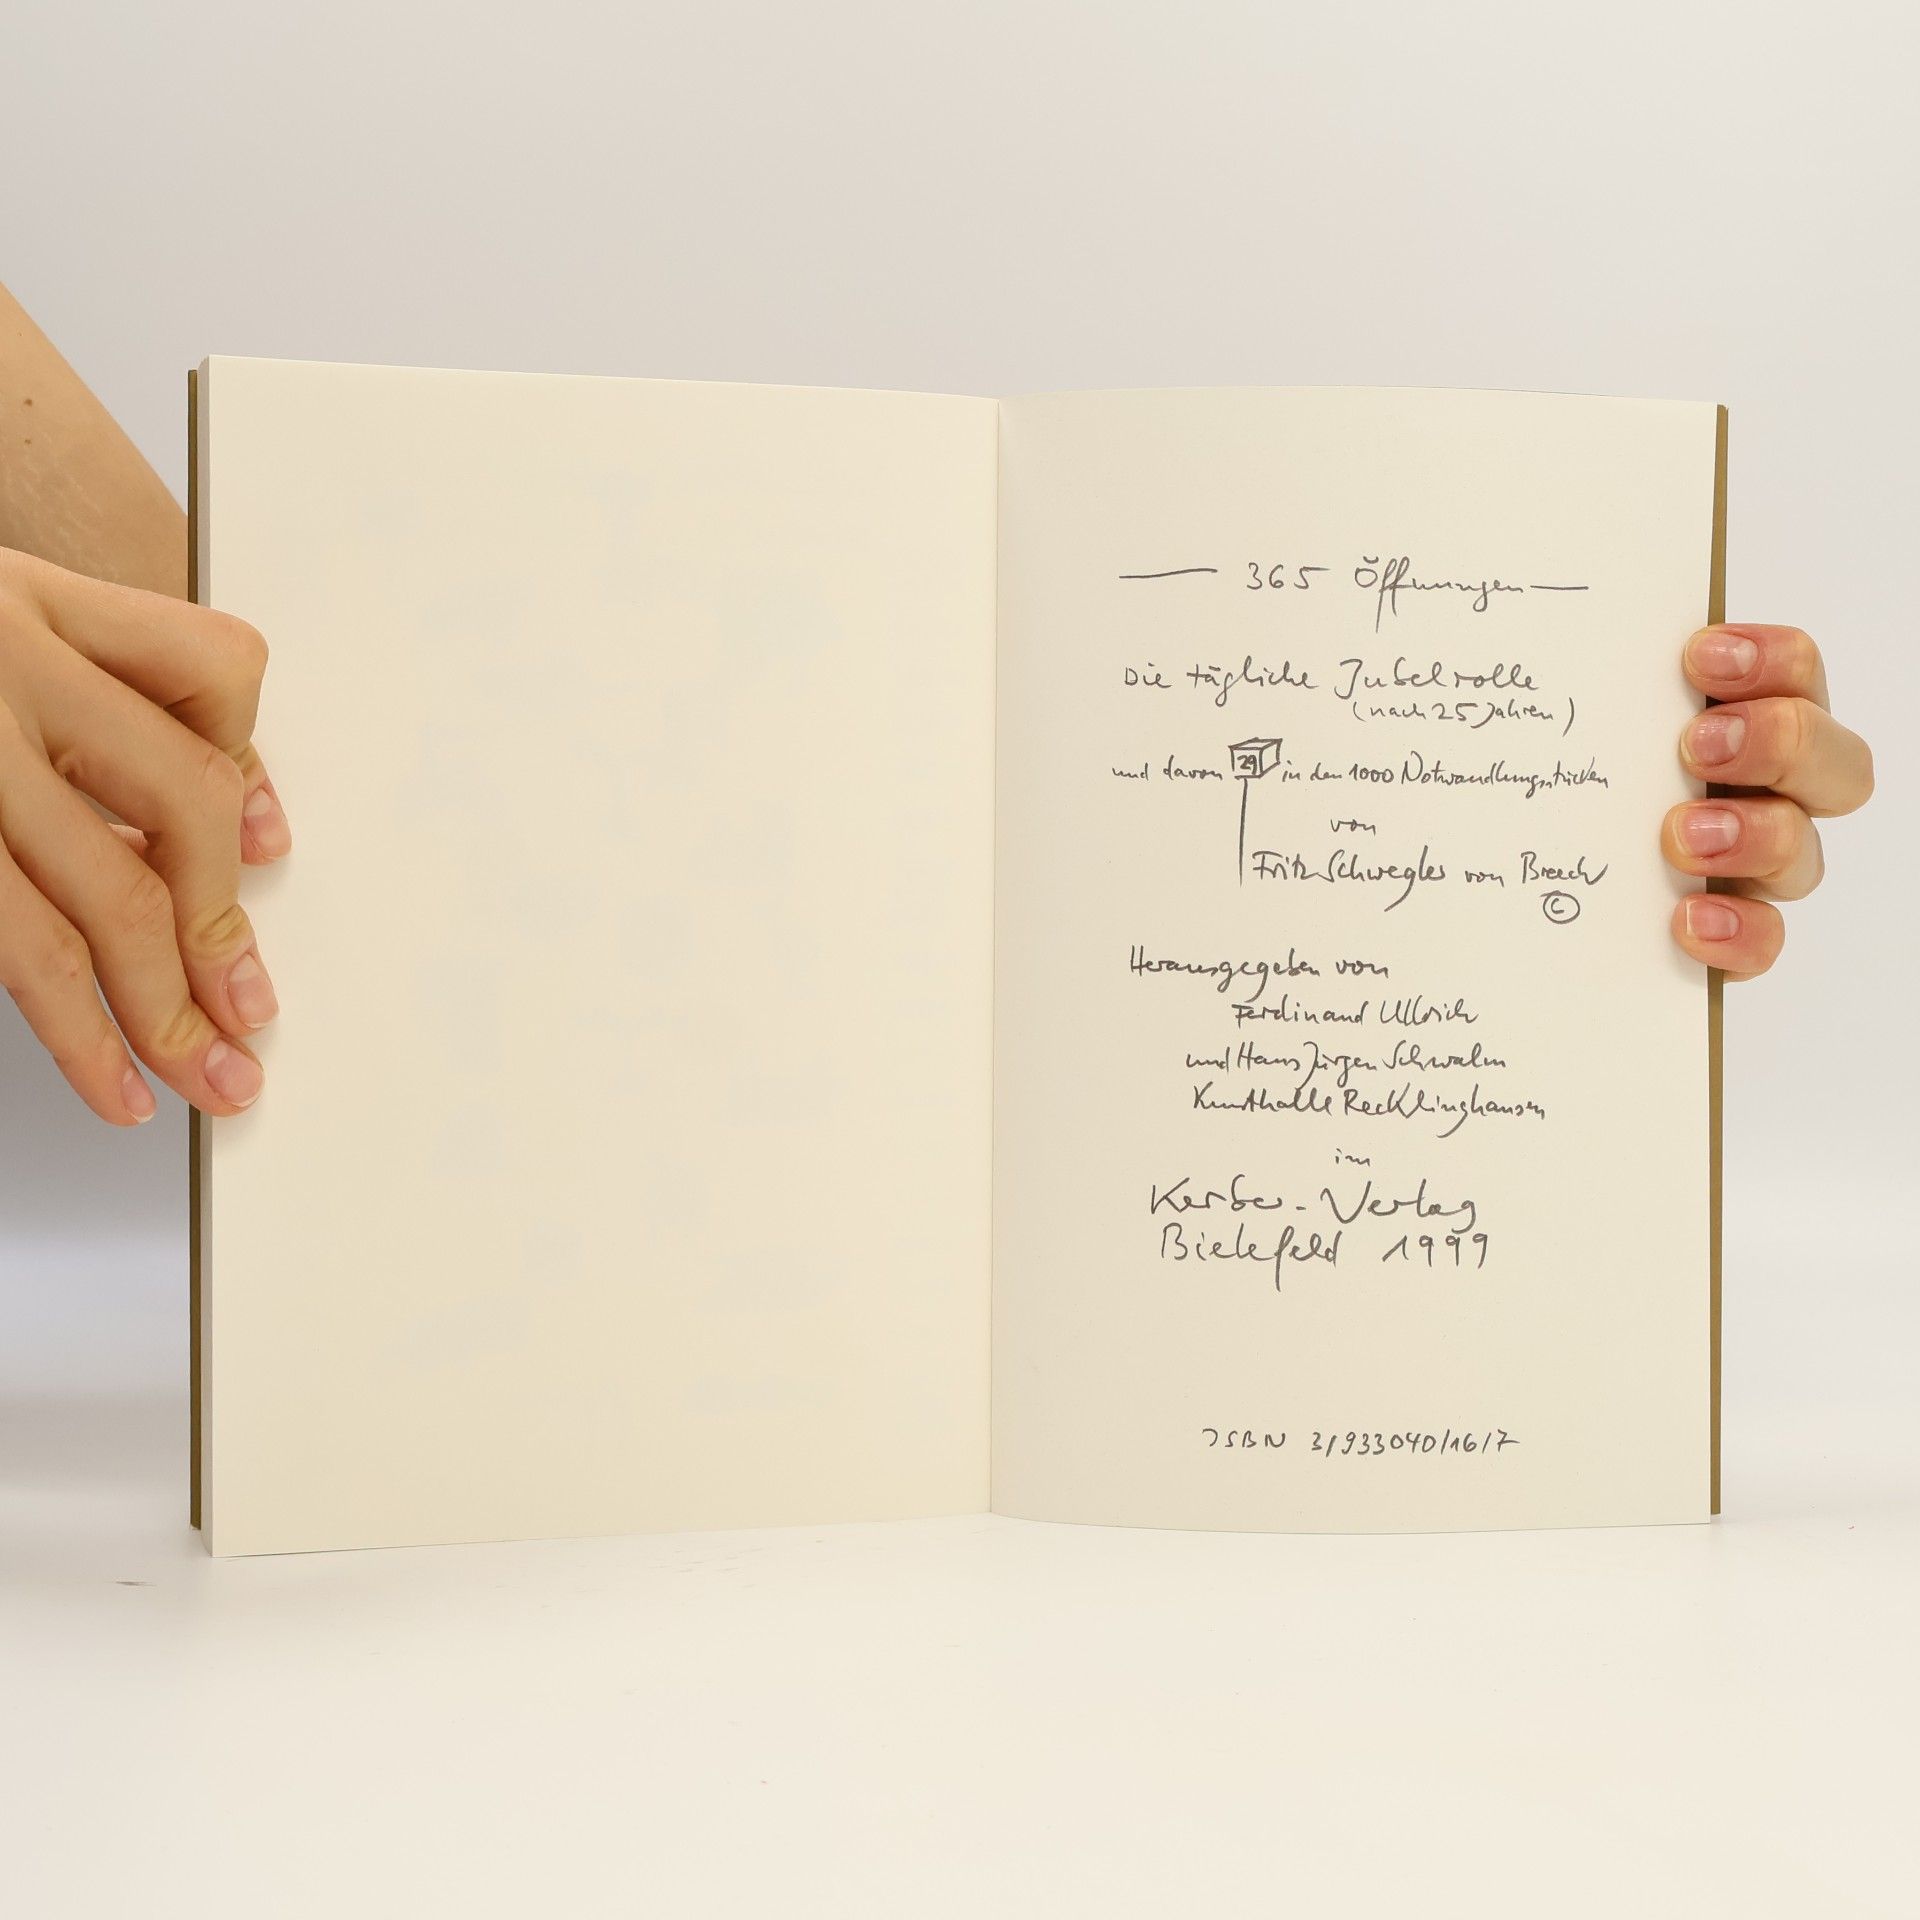 — 365 Öffnungen —
Die tägliche Jubelrolle
(nach 25 Jahren)
und davon 29 in den 1000 Notwandlungsstücken
von
Fritz Schwegler von Breech
©
Herausgegeben von
Ferdinand Ullrich
und Hans Jürgen Schwalm
Kunsthalle Recklinghausen
im
Kerber-Verlag
Bielefeld 1999
ISBN 3/933040/16/7